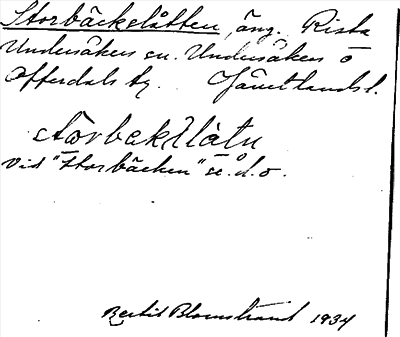 Storbäckslåtten, äng. Rista
Undersåkers sn. Undersåkers o
Offerdals tg. Jämtlands l.
störbekslåtn
Vid "Storbäcken" se. d. o.
Bertil Blomstrand 1934